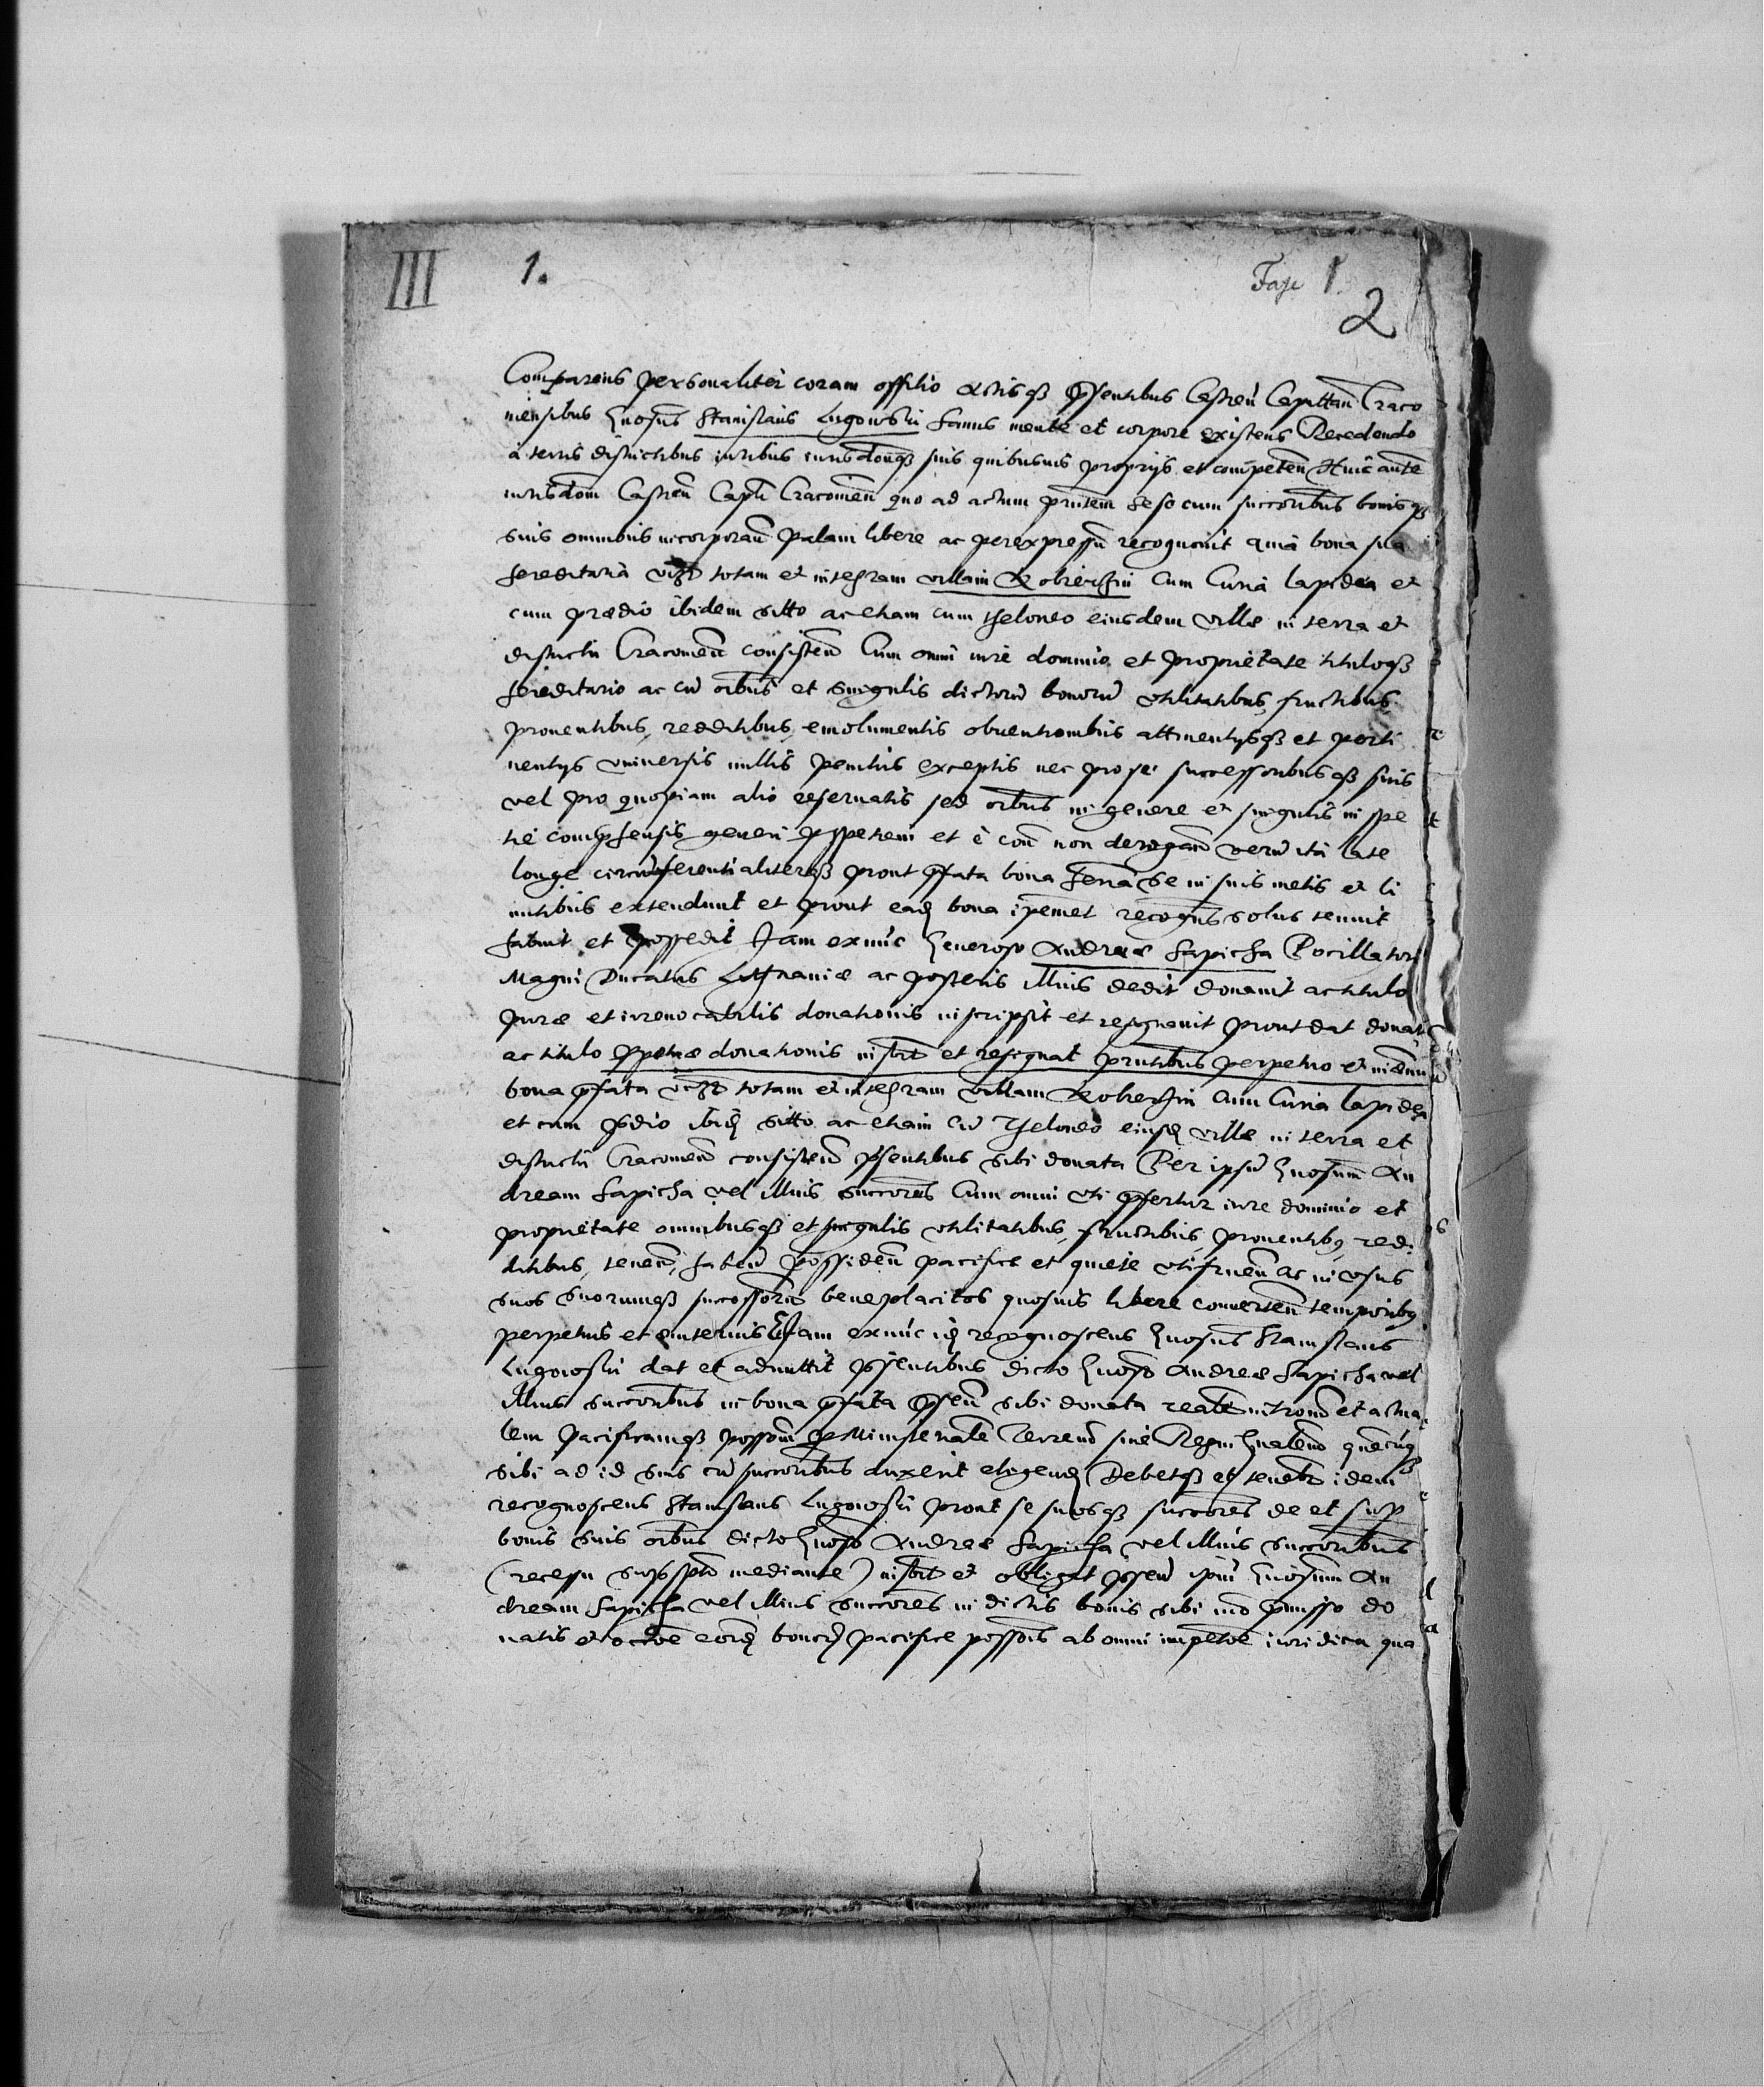 III 1. Fasc 1.
2
Comparens personaliter coram officio Actisq₃ p̃sentibus Castreñ Capittañ Craco
uiensibus Gnosus Stanislaus Lugowski sanus mente et corpore existens Recedendo
a terris districtibus iuribus iurisdoñq₃ suis quibusuis proprijs et competeñ Huic autẽ
iurisdom̃ Castreñ Capli Cracouieñ quo ad actum pñtem sese cum succoribus bonisq₃
suis omnibus incorporañ palam libere ac per expressũ recognouit quia bona sua
hereditaria vizt totam et integram villam Kobierzin Cum Curia lapidea et
cum prædio ibidem sitto ac etiam cum theloneo eiusdem villæ in terra et
districtu Cracouieñ consisteñ Cum omni iure dominio et proprietate tituloq₃
hereditario ac cũ oibus et singulis dictorũ bonorũ vtilitatibus, fructibus
prouentibus, redditibus, emolumentis obuentionibus attinentijsq₃ et perti
nentijs vniuersis nullis penitus exceptis nec pro se successoribusq₃ suis
vel pro quopiam alio reseruatis sed oibus in genere et singulis in spe
tie comp̃hensis generi p speciem et è coñ non derogañ verũ ita late
longe circũferentialiterq₃ prout p̃fata bona hẽria se in suis metis et li
mitibus extendunt et prout eadẽ bona ipsemet recogñs solus tenuit
habuit et possedit Iam ex nũc Generoso Andreæ Sapieha Pocillatori
Magni Ducatus Lithuaniæ ac posteris illius dedit donauit ac titulo
puræ et irreuocabilis donationis inscripsit et resignauit prout dat donat
ac titulo p̃petuæ donationis inscbit et resignat pñtibus perpetuo et in æuũ
bona p̃fata vizt totam et integram villam Kobierzin Cum Curia lapidea
et cum p̃dio ibidẽ sitto ac etiam cũ Theloneo eiusdẽ villæ in terra et
districtu Cracouieñ consisteñ p̃sentibus sibi donata Per ipsũ Gnosum An
dream Sapieha vel illius succores Cum omni vti p̃fertur iure dominio et
proprietate omnibusq₃ et singulis vtilitatibus, fructibus, prouentibus, red
ditibus, teneñ, habeñ possideñ pacifice et quiete vtifrueñ ac in vsus
suos suorumq₃ successorũ beneplacitos quosuis libere conuerteñ temporibus
perpetuis et æuiternis Iam ex nũc idẽ recognoscens Gnosus Stanislaus
Lugowski dat et admittit p̃sentibus dicto Gnoso Andreæ Sapieha vel
illius succoribus in bona p̃fata p̃señ sibi donata realẽ intromõ et actua
lem pacificamq₃ possom̃ p Ministerialẽ Terreñ siue Regni Gnalem̃ quemcũq₃
sibi ad id suis cũ succoribus duxerit eligendũ Debetq₃ et tenebr̃ idem
recognoscens Stanislaus Lugowski prout se suosq₃ succores de et sup
bonis suis oibus dicto Gnoso Andreæ Sapieha vel illius succoribus
(recessu supsspto mediante) inscbit et obligat p̃señ ipm̃ Gnosum An
dream Sapieha vel illius succores in dictis bonis sibi mõ p̃misso do
natis et oc̃c̃one eorũdẽ bonorũ pacifice possoñs ab omni impeton̄e iuridica qua